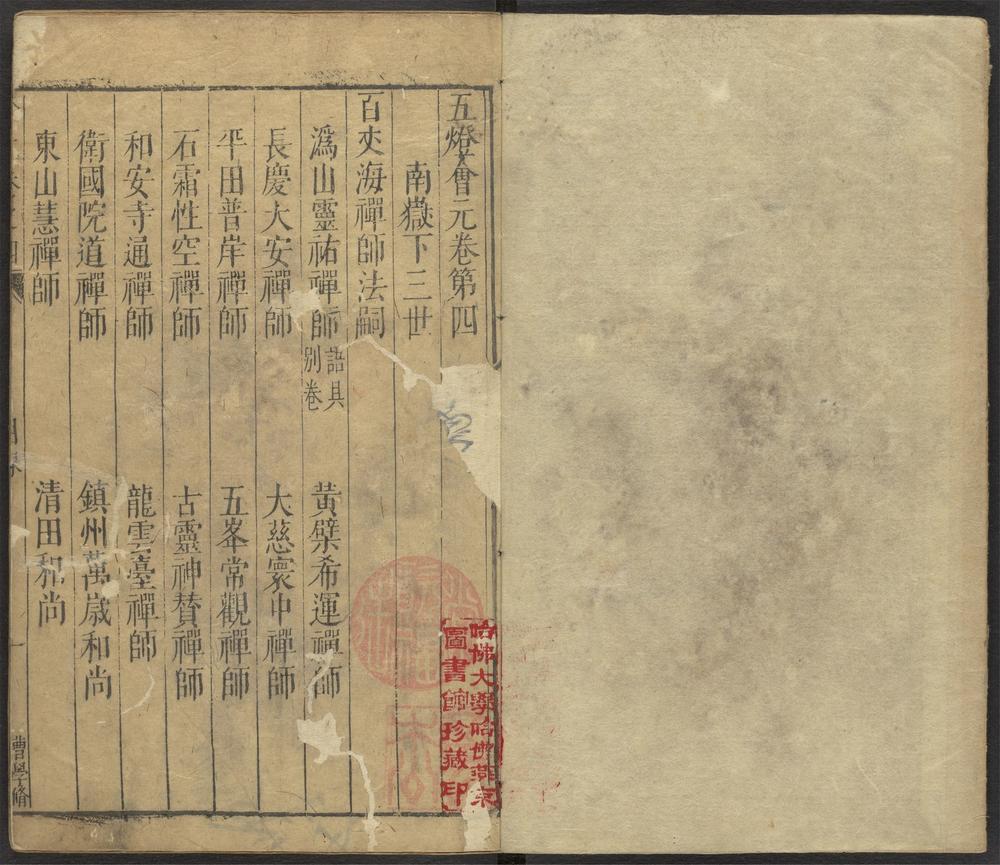 五燈會元卷第四
南嶽下三世
百丈海禪師法嗣
溈山靈祐禪師 語具別卷 黃檗希運禪師
長慶大安禪師 大慈寰中禪師
平田普岸禪師 五峯常觀禪師
石霜性空禪師 古靈神贊禪師
和安寺通禪師 龍雲臺禪師
衛國院道禪師 鎮州萬歲和尚
東山慧禪師 清田和尚
曹學脩
哈佛大學哈佛燕京
圖書館珍藏印